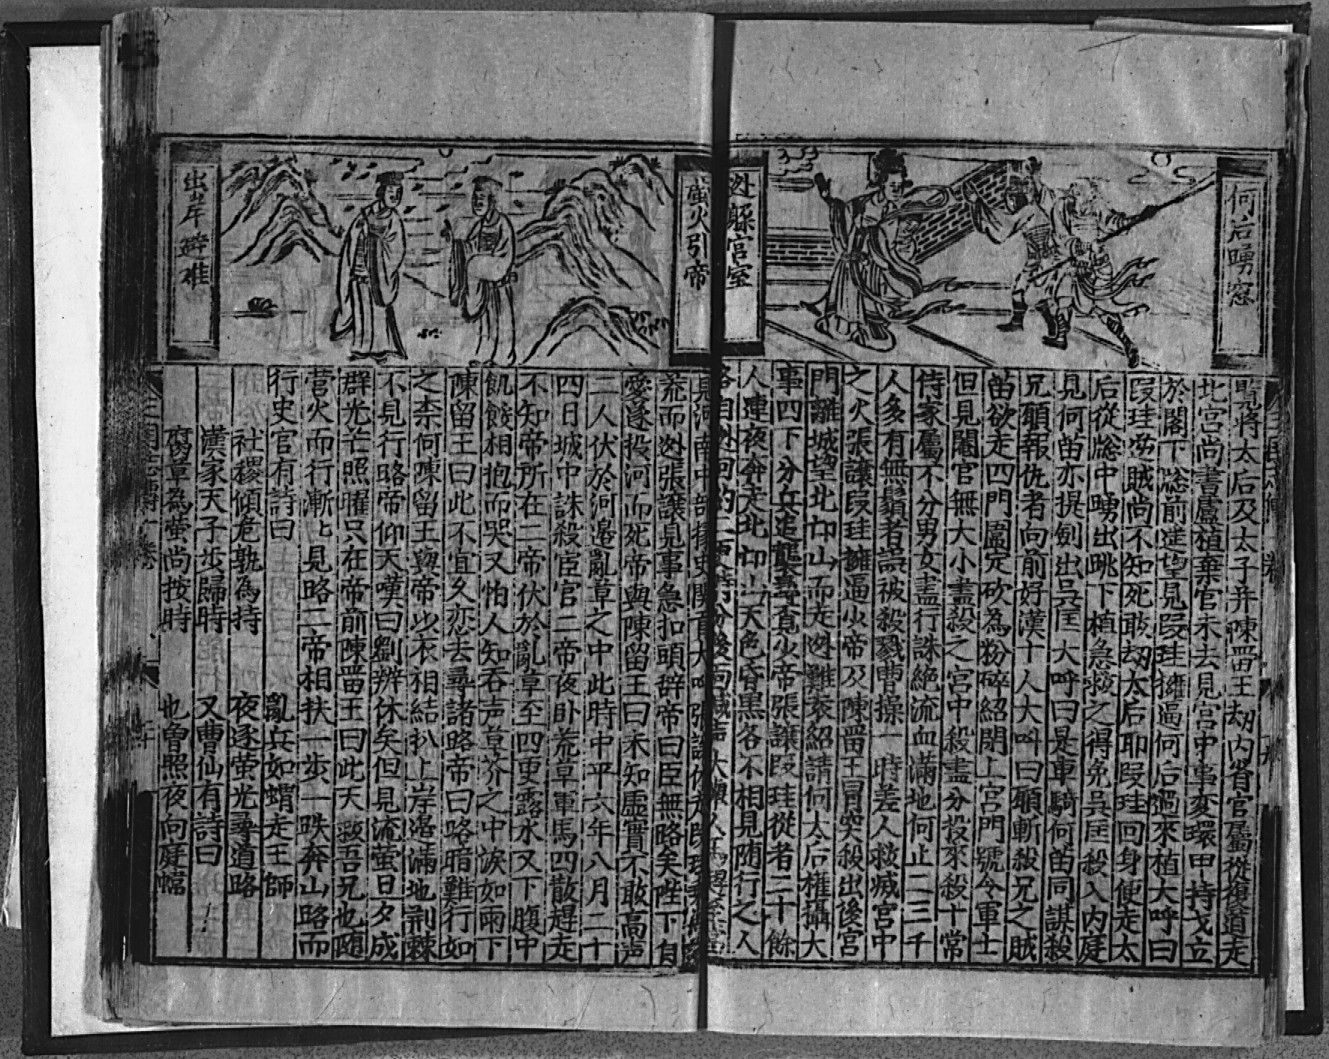 何后踴窓
迯躱官室
覧將太后及太子并陳畱王刼内省官屬從復道走
北宮尚書盧植棄官未去見宮中事変環甲持戈立
於閣下窓前遥望見叚珪擁逼何后過來植大呼曰
叚珪逆賊尚不知死敢刼太后耶叚珪回身便走太
后從窓中踴出跳下植急救之得免吴匡殺入内庭
見何苗亦提劍出吴匡大呼曰是車騎何苗同謀殺
兄願報仇者向前好漢十人大呌曰願斬殺兄之賊
苗欲走四門圍定砍為粉碎紹閉上宮門號令軍士
但見閹官無大小盡殺之宮中殺盡分投來殺十常
侍家屬不分男女盡行誅絕流血滿地何止二三千
人多有無鬚者誤被殺戮曹操一時差人救㓕宮中
之火張讓叚珪擁逼少帝及陳畱王冒突殺出後宮
門離城望北邙山而走迯難袁紹請何太后權攝大
事四下分兵追襲尋覓少帝張讓叚珪從者二十餘
人連夜奔走北邙山天色昏黒各不相見随行之人
螢火引帝
出岸避难
荒而迯張讓見事急扣頭辞帝曰臣無路矣陛下自
愛遂投河而死帝與陳留王曰未知虛實不敢高声
二人伏於河邉亂草之中此時中平六年八月二十
四日城中誅殺宦官二帝夜卧荒草軍馬四散趕走
不知帝所在二帝伏於亂草至四更露水又下腹中
飢餒相抱而哭又怕人知吞声草芥之中淚如雨下
陳留王曰此不宜久恋去尋諸路帝曰路暗難行如
之奈何陳留王與帝以衣相結扒上岸邉滿地荆棘
不見行路帝仰天嘆曰劉辨休矣但見流萤日夕成
群光芒照曜只在帝前陳畱王曰此天教吾兄也随
营火而行漸ヒ見路二帝相扶一步一跌奔山路而
行史官有詩曰 亂兵如蝟走王師
社稷傾危孰為持 夜逐萤光尋道路
漢家天子步歸時 又曹仙有詩曰
腐草為萤尚按時 也曽照夜向庭幃